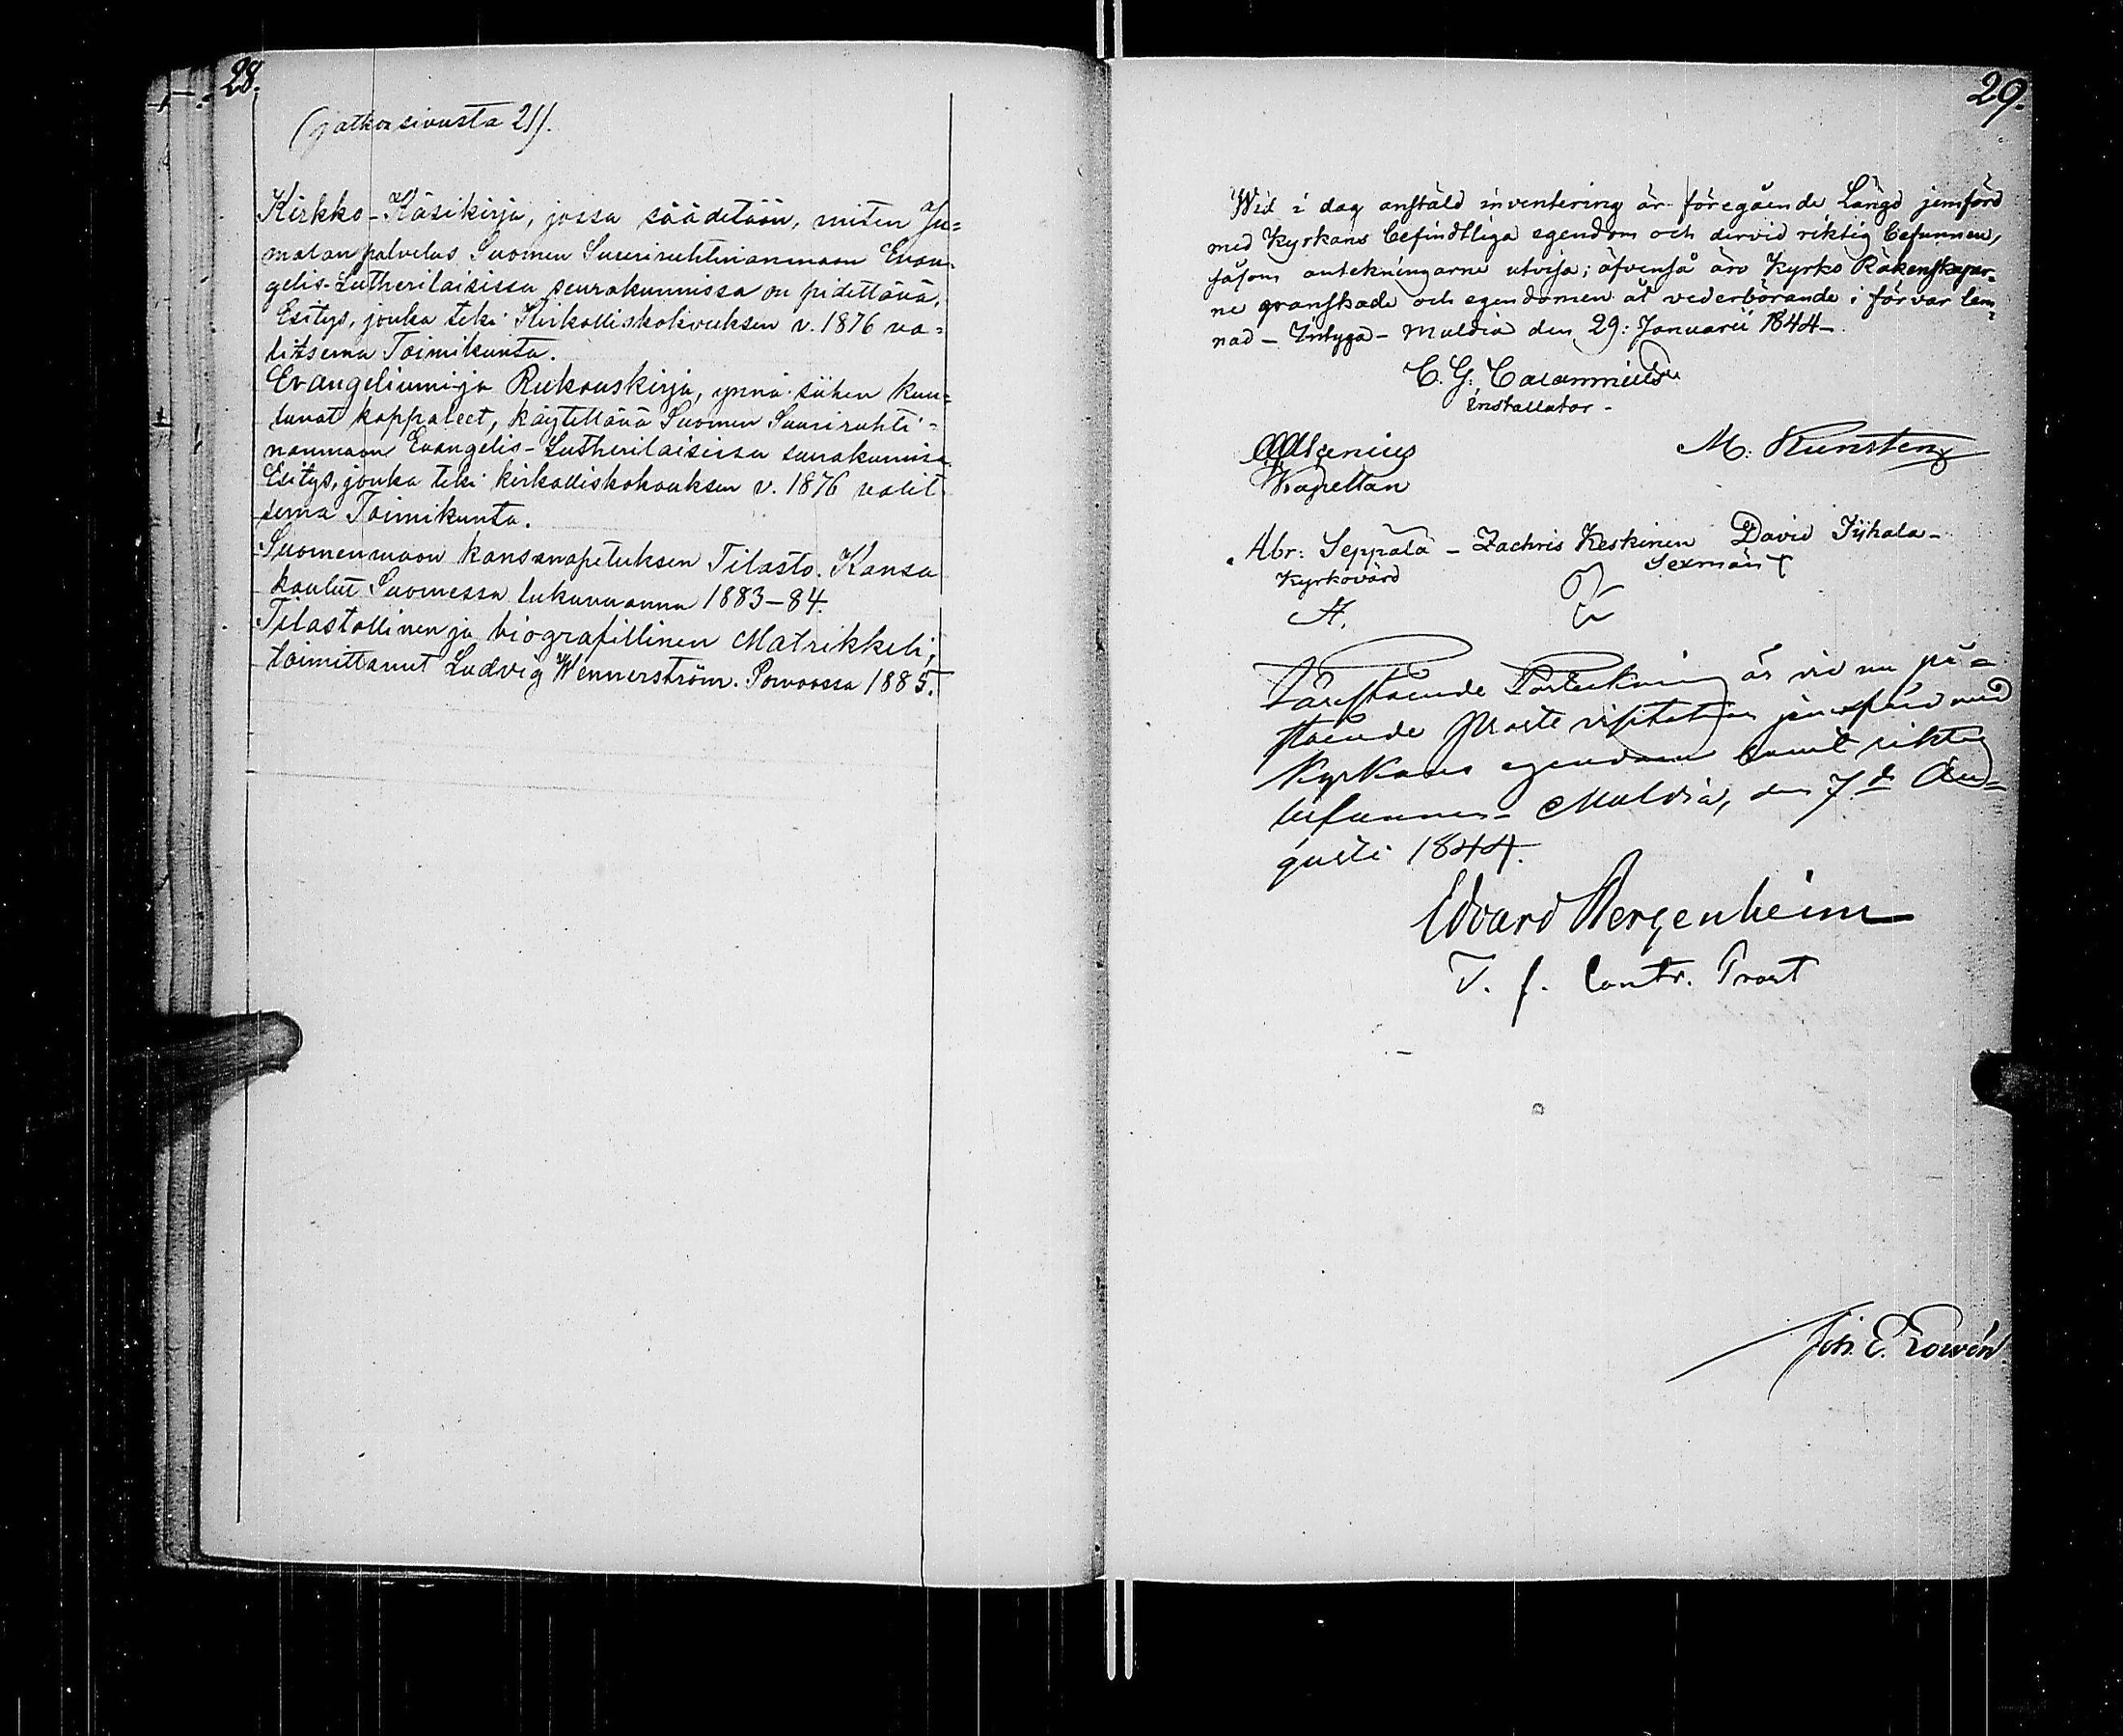 28.
(jatkoa sivusta 21).
Kirkko-Käsikirja, jossa säädetään, miten Ju=
malanpalvelus Suomen Suuriruhtinanmaan Evan-
gelis-Lutherilaisissa seurakunnissa on pidettävä.
Esitys, jonka teki Kirkolliskokouksen v. 1876 va=
litsema Toimikunta.
Evangeliumi- ja Rukouskirja, ynnä siihen kuu=
luvat kappaleet, käytettävä Suomen Suuriruhti=
nanmaan Evangelis-Lutherilaisissa seurakunnissa
Esitys, jonka teki kirkolliskokouksen v. 1876 valit
sema Toimikunta.
Suomenmaan kansanopetuksen Tilasto. Kansa
koulut Suomessa lukuvuonna 1883-84.
Tilastollinen ja biografillinen Matrikkeli,
toimittanut Ludvig Wennerström. Porvoossa 1885.
29.
Wid i dag anstäld inventering är föregående Längd jemförd
med Kyrkans befindtliga egendom och dervid riktig befunnen,
såsom antekningarne utvisa; äfvenså äro Kyrko Räkenskaper-
ne granskade och egendomen åt vederbörande i förvar lem=
nad - Intyga - Muldia den 29: Januarii 1844-
C. G.
installator -
Kapellan
M.
Abr: Seppälä - Zachris Keskinen David Tyhala-
Kyrkovärd
Sexmän
Förestående Förteckning är vid nu på=
stående Prosте visitation jemförd med
Kyrkans egendom samt riktig
befunnen - Muldia, den 7de Au=
gusti 1844.
Edvard Bergenheim
T. f. Contr. Prost
Joh. E.